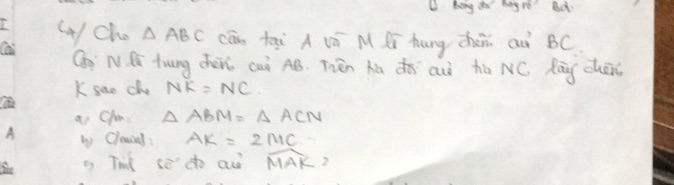 C4/ Cho Δ ABC cân tại A và M là trung điểm của BC.
Gọi N là trung điểm của AB. Trên tia đối của tia NC, lấy điểm
K sao cho NK = NC.
a, C/m: Δ ABM = Δ ACN
b) C/minh: AK = 2MC
c, Tính số đo của MAK?
I
A